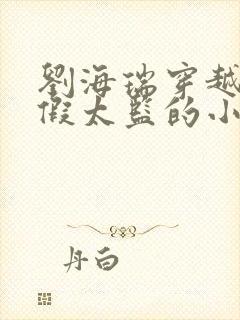 劉海瑞穿越
假太監的小
丹白